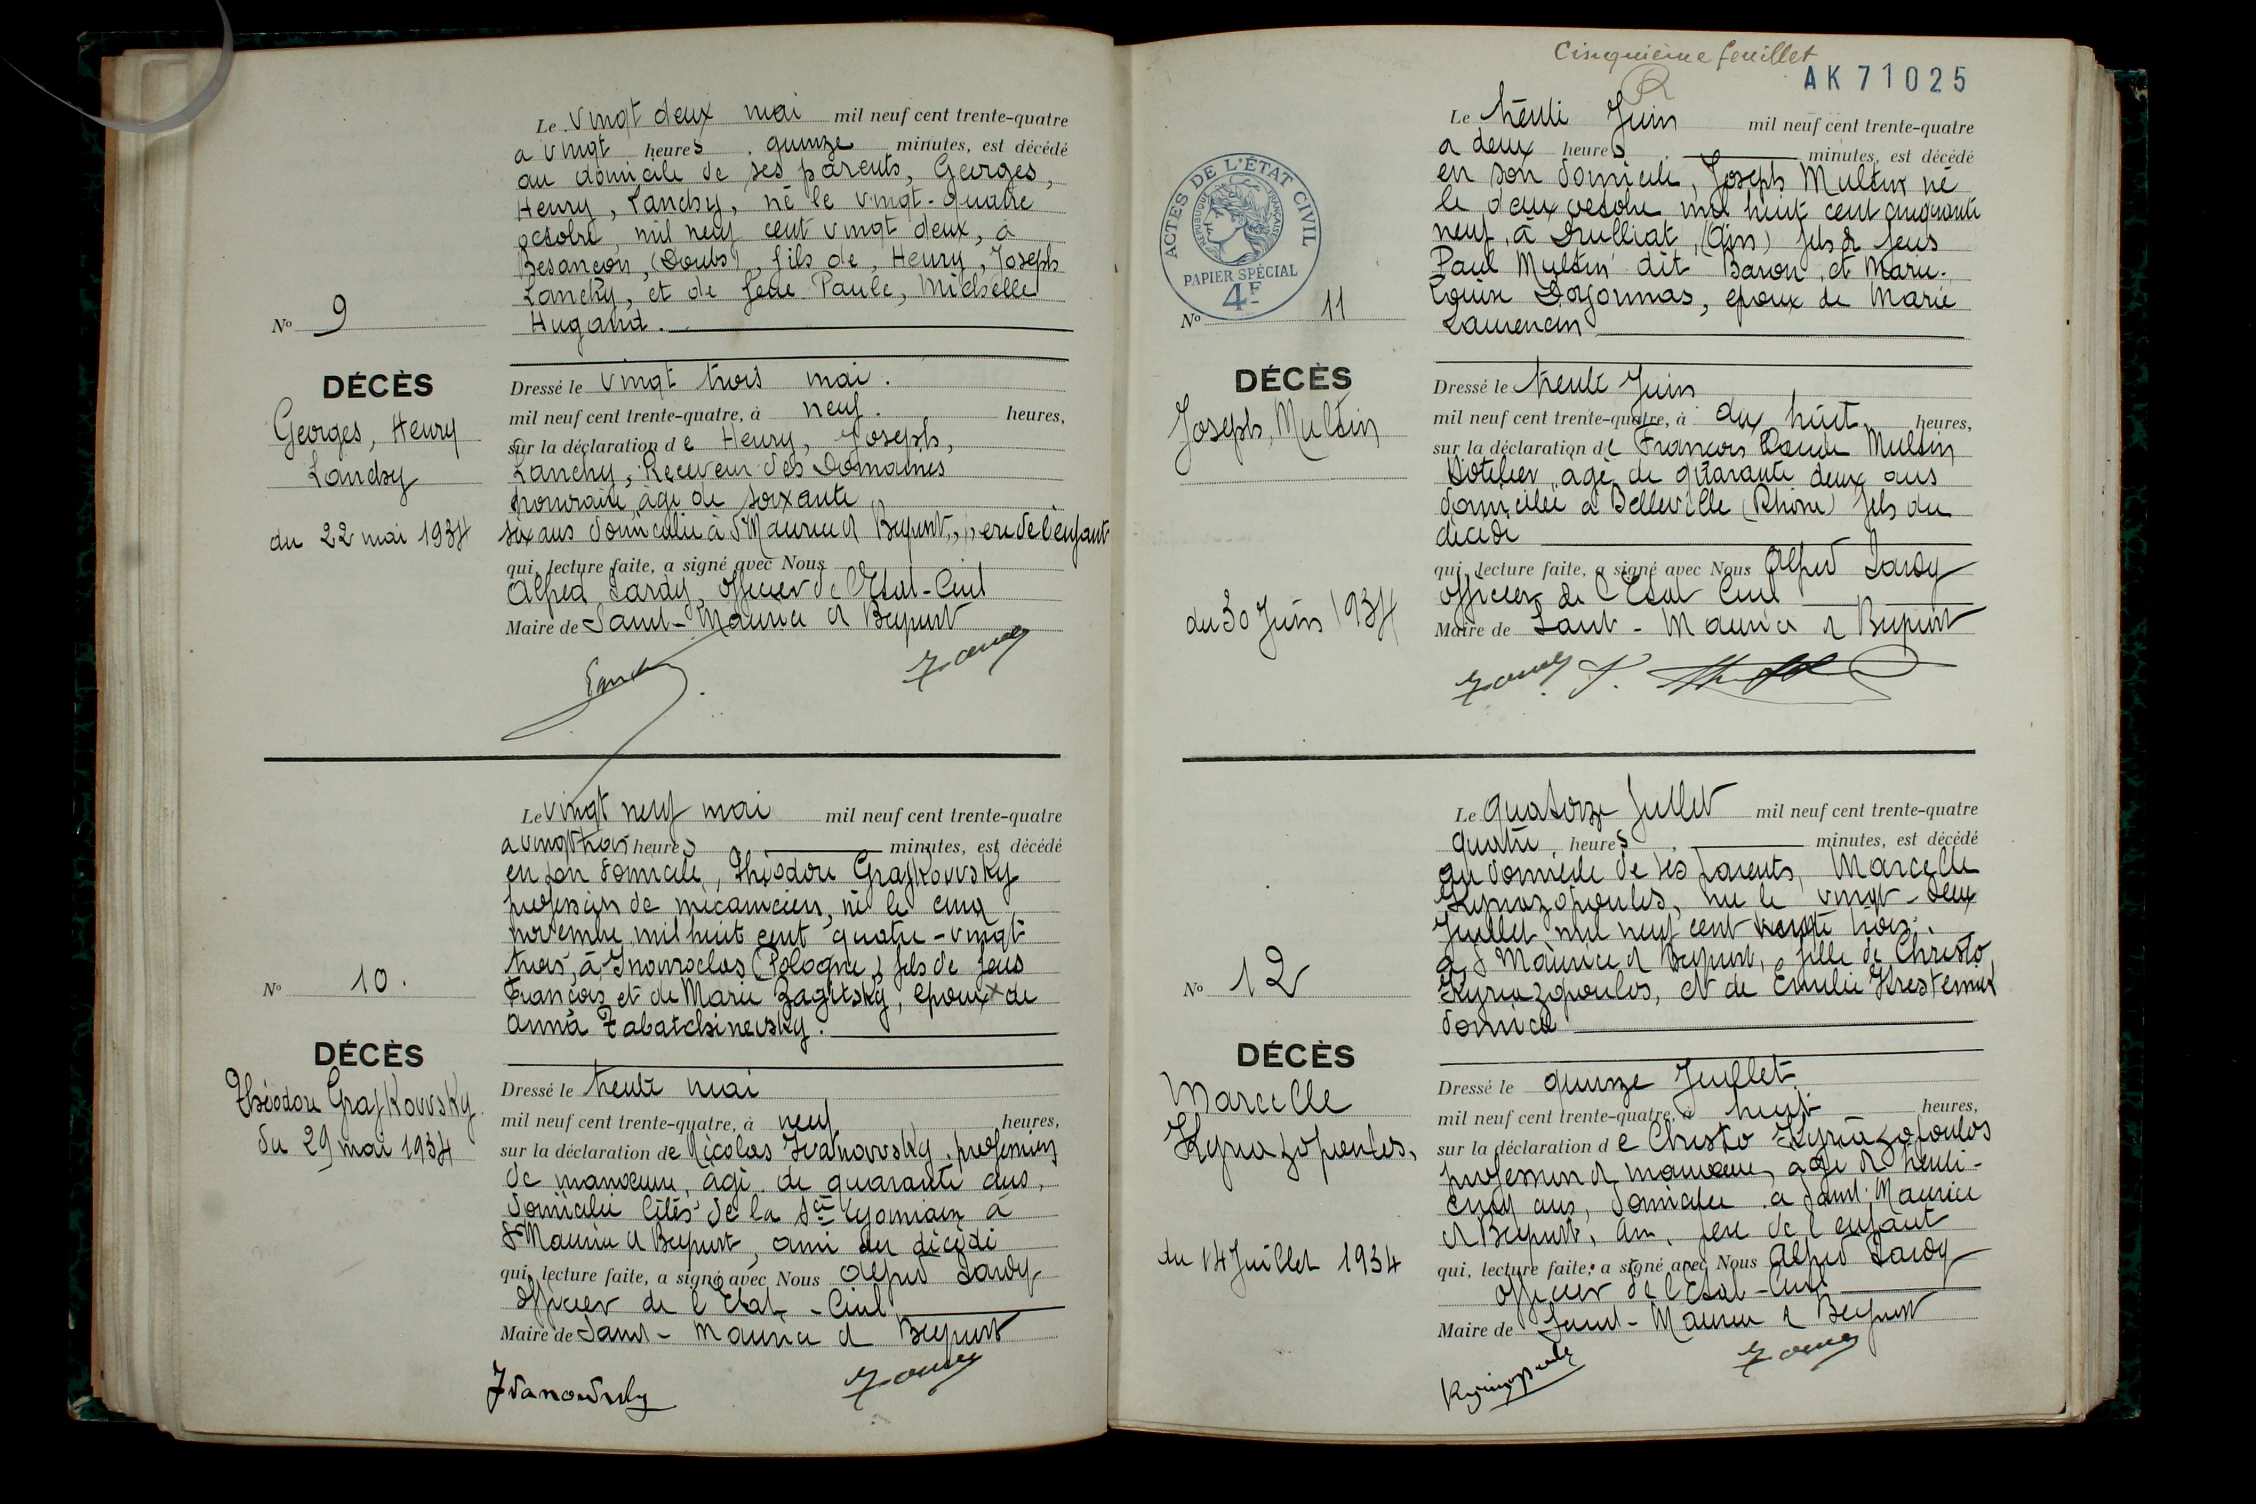 Le vingt deux mai mil neuf cent trente-quatre
a vingt heures quinze minutes, est décédé
au domicile de ses parents, Georges,
Henry, Lanchy, né le vingt-quatre
octobre, mil neuf cent vingt deux, à
Besançon, (Doubs), fils de, Henry, Joseph
Lanchy, et de feue Paule, Michelle
Hugand.
No 9
DÉCÈS
Georges, Henry
Lanchy
du 22 mai 1934
Dressé le vingt trois mai.
mil neuf cent trente-quatre, à neuf. heures,
sur la déclaration de Henry, Joseph,
Lanchy, Receveur des Domaines
honoraire, âgé de soixante
six ans domicilié à St Maurice d Beynost, père de l'enfant
qui, lecture faite, a signé avec Nous
Alfred Lardy, officier de l'Etat-Civil
Maire de Saint-Maurice d Beynost
Le vingt neuf mai mil neuf cent trente-quatre
a vingt trois heures minutes, est décédé
en son domicile, Théodore Grajkowsky
profession de mécanicien, né le cinq
novembre mil huit cent quatre-vingt
trois, à Inowroclas (Pologne) fils de feus
François et de Marie Zagitsky, époux de
Anna Tabatchinevsky.
No 10.
DÉCÈS
Théodore Grajkowsky.
du 29 mai 1934
Dressé le trente mai
mil neuf cent trente-quatre, à neuf heures,
sur la déclaration de Nicolas Ivanowsky, profession
de manœuvre, âgé de quarante ans,
domicilié Cités de la Sté Lyonnaise à
St Maurice d Beynost, ami du décédé
qui, lecture faite, a signé avec Nous Alfred Lardy
officier de l'Etat-Civil
Maire de Saint-Maurice d Beynost
Ivanowsky
Cinquième feuillet
AK 71025
ACTES DE L'ÉTAT CIVIL
RÉPUBLIQUE FRANÇAISE
PAPIER SPÉCIAL
4F
Le trente Juin mil neuf cent trente-quatre
a deux heures minutes, est décédé
en son domicile, Joseph Multin né
le deux octobre mil huit cent cinquante
neuf, à Druillat, (Ain) fils de feus
Paul Multin dit Baron et Marie-
Louise Doyonnas, époux de Marie
Laurencin
No 11
DÉCÈS
Joseph, Multin
du 30 Juin 1934
Dressé le trente Juin
mil neuf cent trente-quatre, à dix huit heures,
sur la déclaration de François Multin
hôtelier, âgé de quarante deux ans
domicilié à Belleville (Rhône) fils du
décédé
qui, lecture faite, a signé avec Nous Alfred Lardy
officier de l'Etat Civil
Maire de Saint-Maurice d Beynost
Le quatorze Juillet mil neuf cent trente-quatre
quatre heures minutes, est décédé
au domicile de ses parents, Marcelle
Kyriazopoulos, née le vingt-deux
Juillet mil neuf cent trente trois.
à St Maurice d Beynost, fille de Christo,
Kyriazopoulos, et de Emilie
domicilié
No 12
DÉCÈS
Marcelle
Kyriazopoulos,
du 14 Juillet 1934
Dressé le quinze Juillet
mil neuf cent trente-quatre, à neuf heures,
sur la déclaration de Christo Kyriazopoulos
profession d manœuvre, âgé d trente-
cinq ans, domicilié a Saint-Maurice
d Beynost, Ain, père de l'enfant
qui, lecture faite, a signé avec Nous Alfred Lardy
officier de l'Etat-Civil
Maire de Saint-Maurice d Beynost